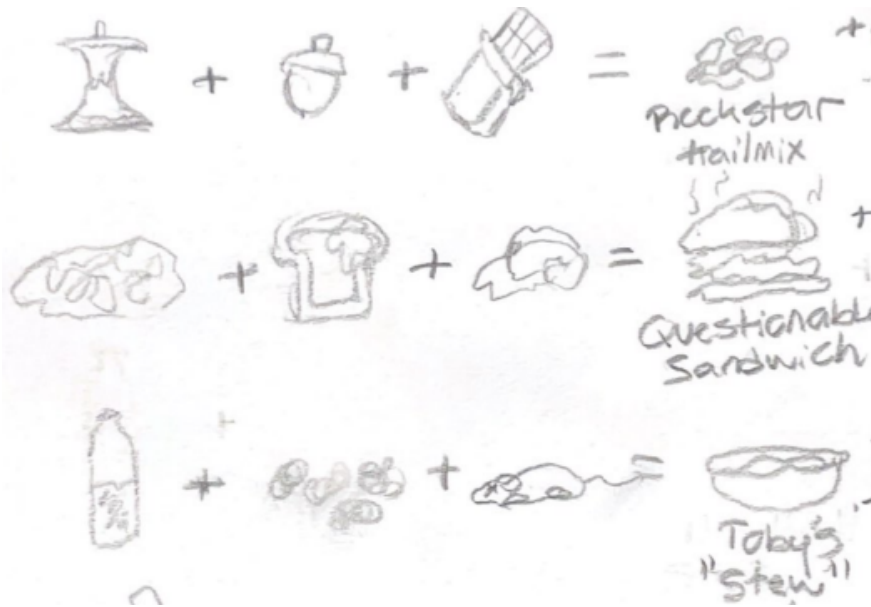 + + =
trailmix
+
+ + =
Questionabl
Sandwich
+
+ + =
Toby's
"Stew"